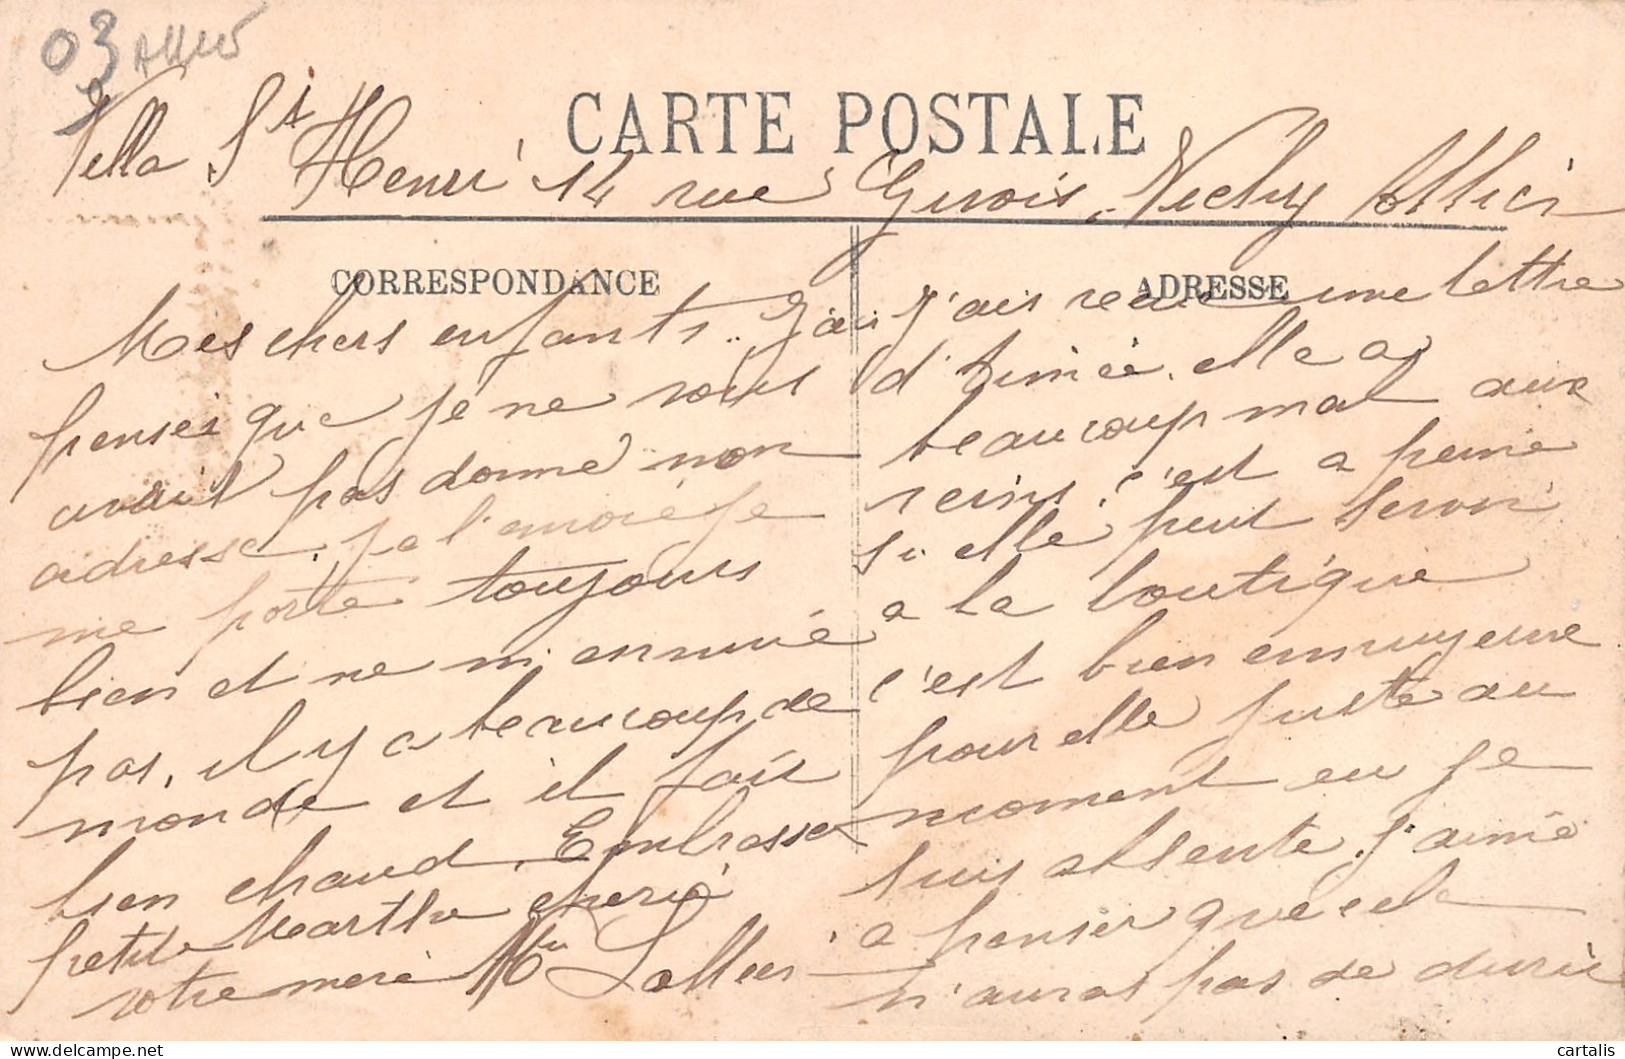 03 Allier
CARTE POSTALE
Villa St Henri 14 rue Givois, Vichy Allier
CORRESPONDANCE
Mes chers enfants. J'ai
penser que je ne vous
avait pas donné mon
adresse, je l'envoie je
me porte toujours
bien et ne m'ennuie
pas, il y a beaucoup de
monde et il fait
bien chaud, Embrasser
petite Marthe cheri
votre mere Mme
ADRESSE
J'ais recue une lettre
d'Aimée, elle a
beaucoup mal aux
reins, c'est a peine
si elle peut servir
a la boutique
c'est bien ennuyeuse
pour elle juste au
moment ou je
suis absente. j'aime
a penser que cela
n'auras pas de durée
cartalis